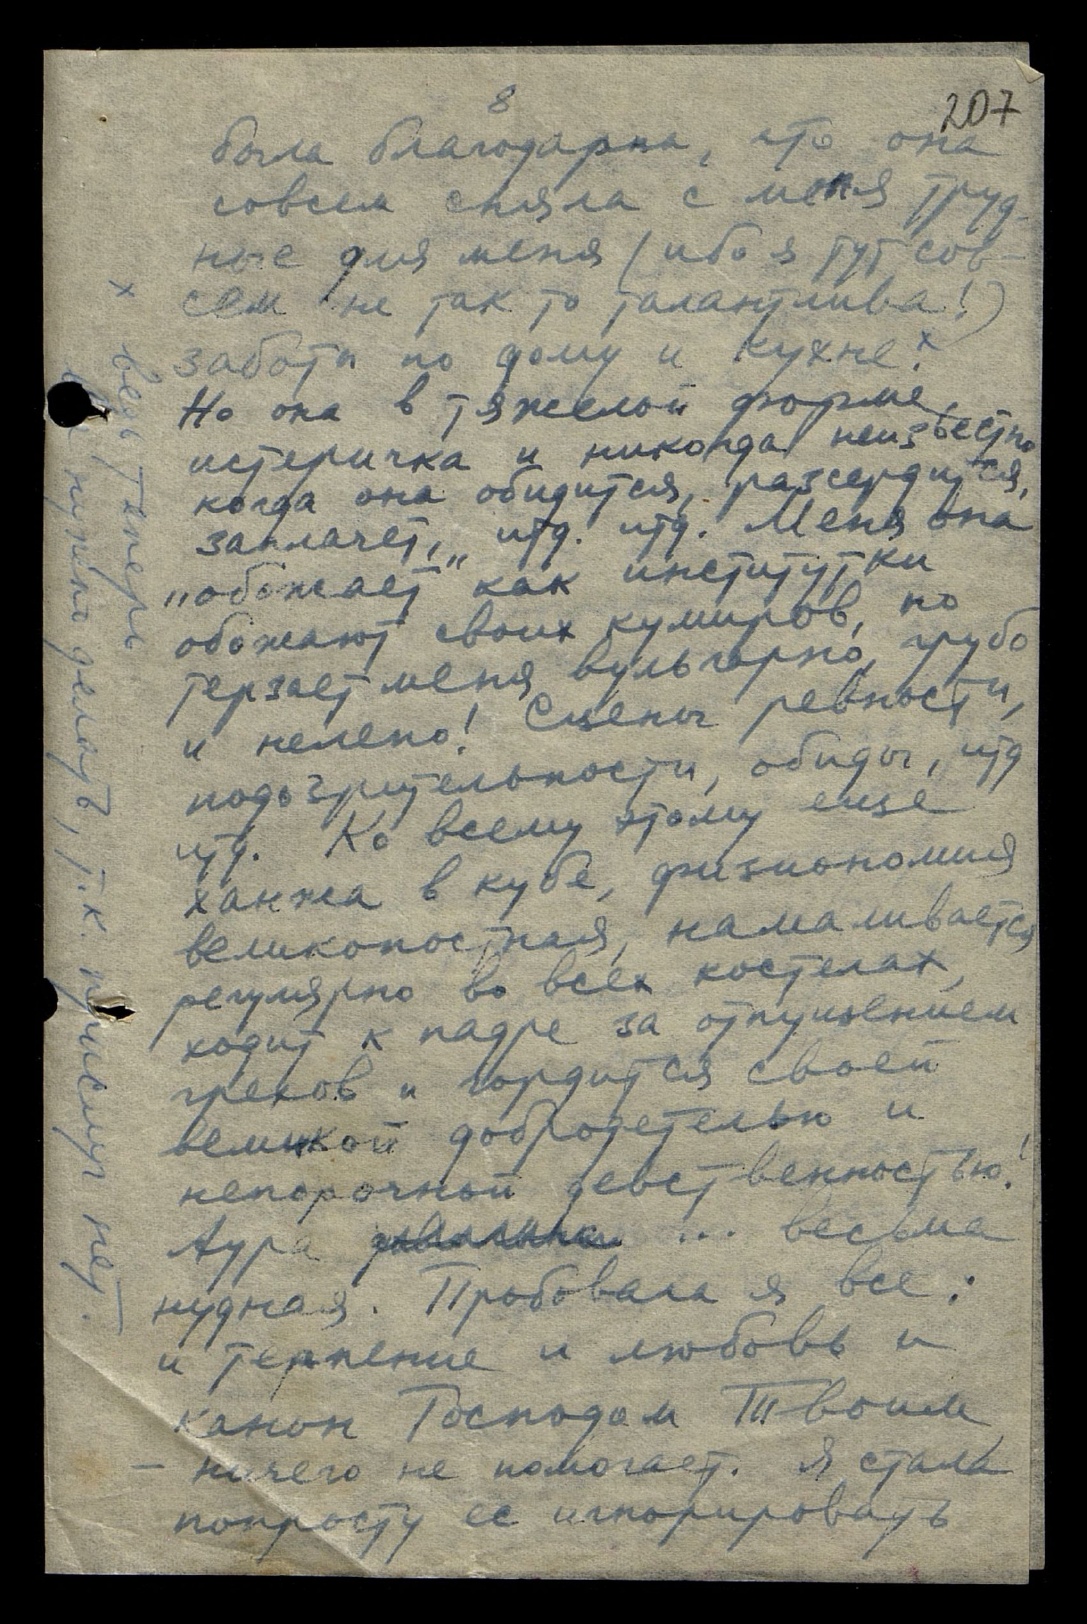 8
207
была благодарна, что она
совсем сняла с меня труд-
ные для меня (ибо я тут сов-
сем не так то талантлива!)
заботы по дому и кухне!x
Но она в тяжелой форме
истеричка и никогда неизвестно
когда она обидится, разсердится,
заплачет, итд. итд. Меня она
„обожает" как институтки
обожают своих кумиров, но
терзает меня вульгарно, грубо
и нелепо! Сцены ревности,
подозрительности, обиды, итд
итд. Ко всему этому еще
ханжа в кубе, физиономия
великопостная, намаливается
регулярно во всех костелах,
ходит к падре за отпущением
грехов и гордится своей
великой добродетелью и
непорочной девственностью!
Аура ... весьма
нудная. Пробовала я все:
и терпение и любовь и
канон Господом Твоим
– ничего не помогает. Я стала
попросту ее игнорировать
x Ведь теперь
нужно делать, т.к. прислуг нет.